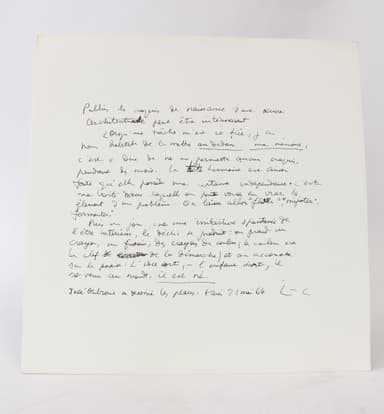 Publier les croquis de naissance d'une œuvre
architecturale peut être intéressant
Lorsqu'une tâche m'est confiée, j'ai
pour habitude de la mettre au dedans ma mémoire,
c'est à dire de ne me permettre aucun croquis
pendant des mois. La tête humaine est ainsi
faite qu'elle possède une certaine indépendance : c'est
une boîte dans laquelle on peut verser en vrac les
éléments d'un problème. On laisse alors "flotter" "mijoter",
"fermenter".
Puis un jour une initiative spontanée de
l'être intérieur, le déclic se produit : on prend un
crayon, un fusain, des crayons de couleur (la couleur est
la clef de la démarche) et on accouche
sur le papier. L'idée sort, – l'enfant sort, il
est venu au monde, il est né.
a dessiné les plans. Paris 21 mai 64 L–C